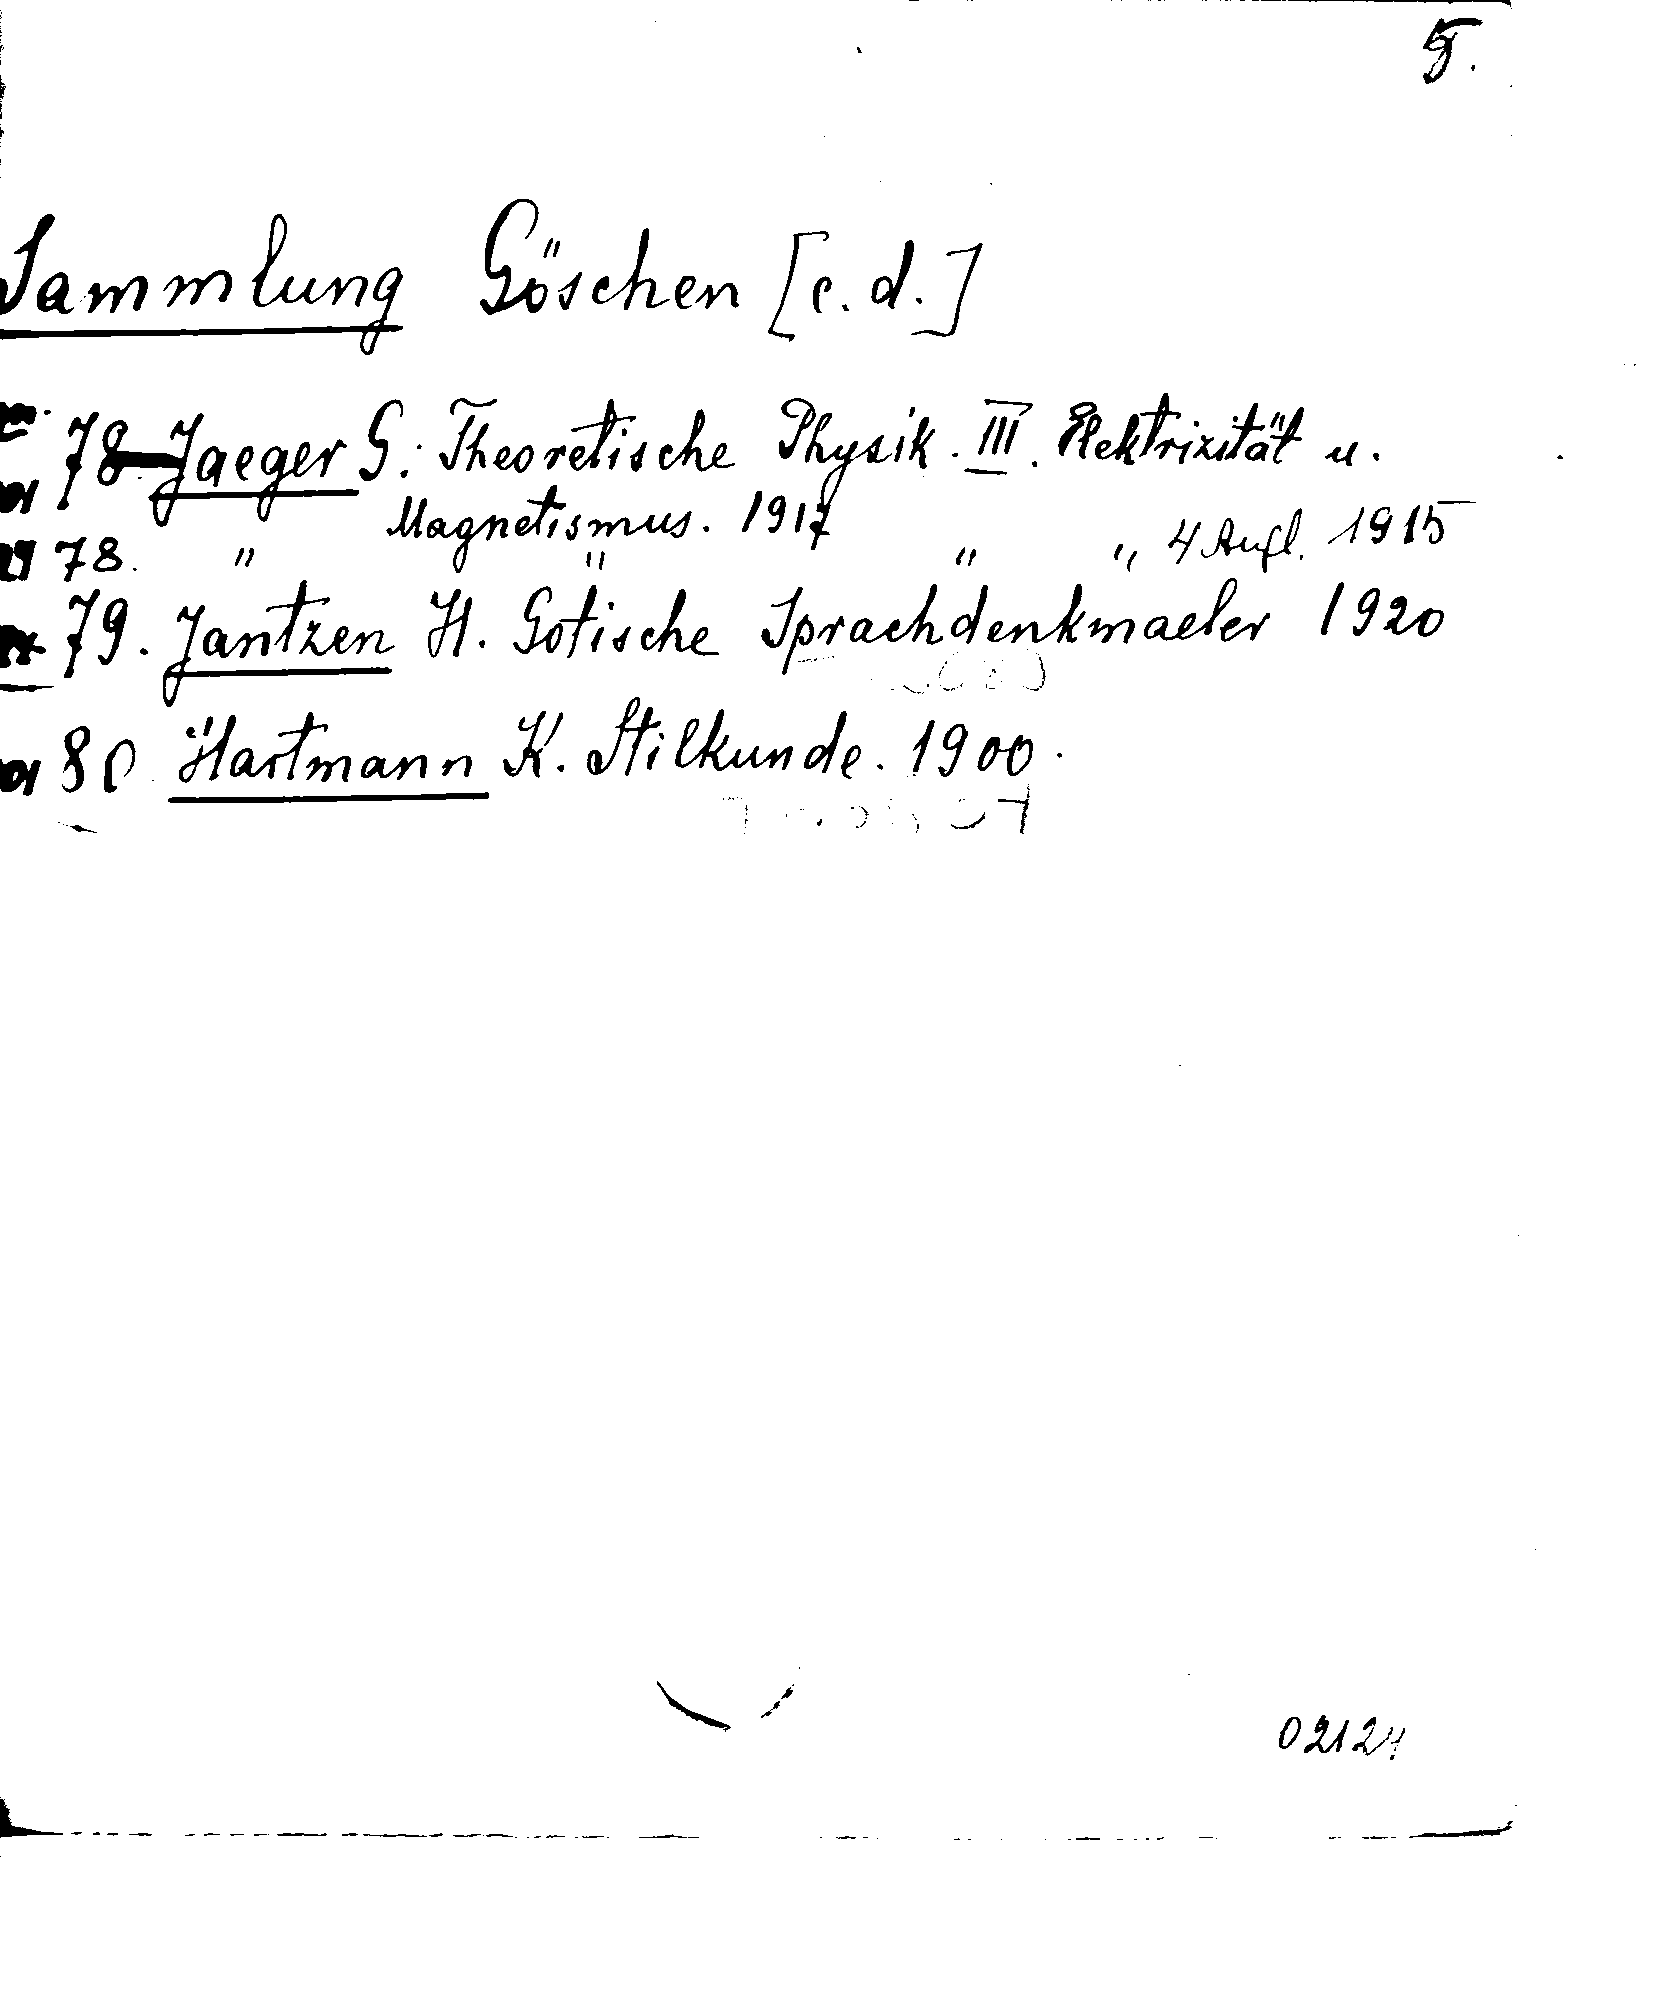 5.
Sammlung Göschen [c.d.]
78 Jaeger G. Theoretische Physik. III. Elektrizität u.
Magnetismus. 1917
78. " " " " 4 Aufl. 1915
79. Jantzen H. Gotische Sprachdenkmaeler 1920
80 Hartmann K. Stilkunde. 1900.
02124